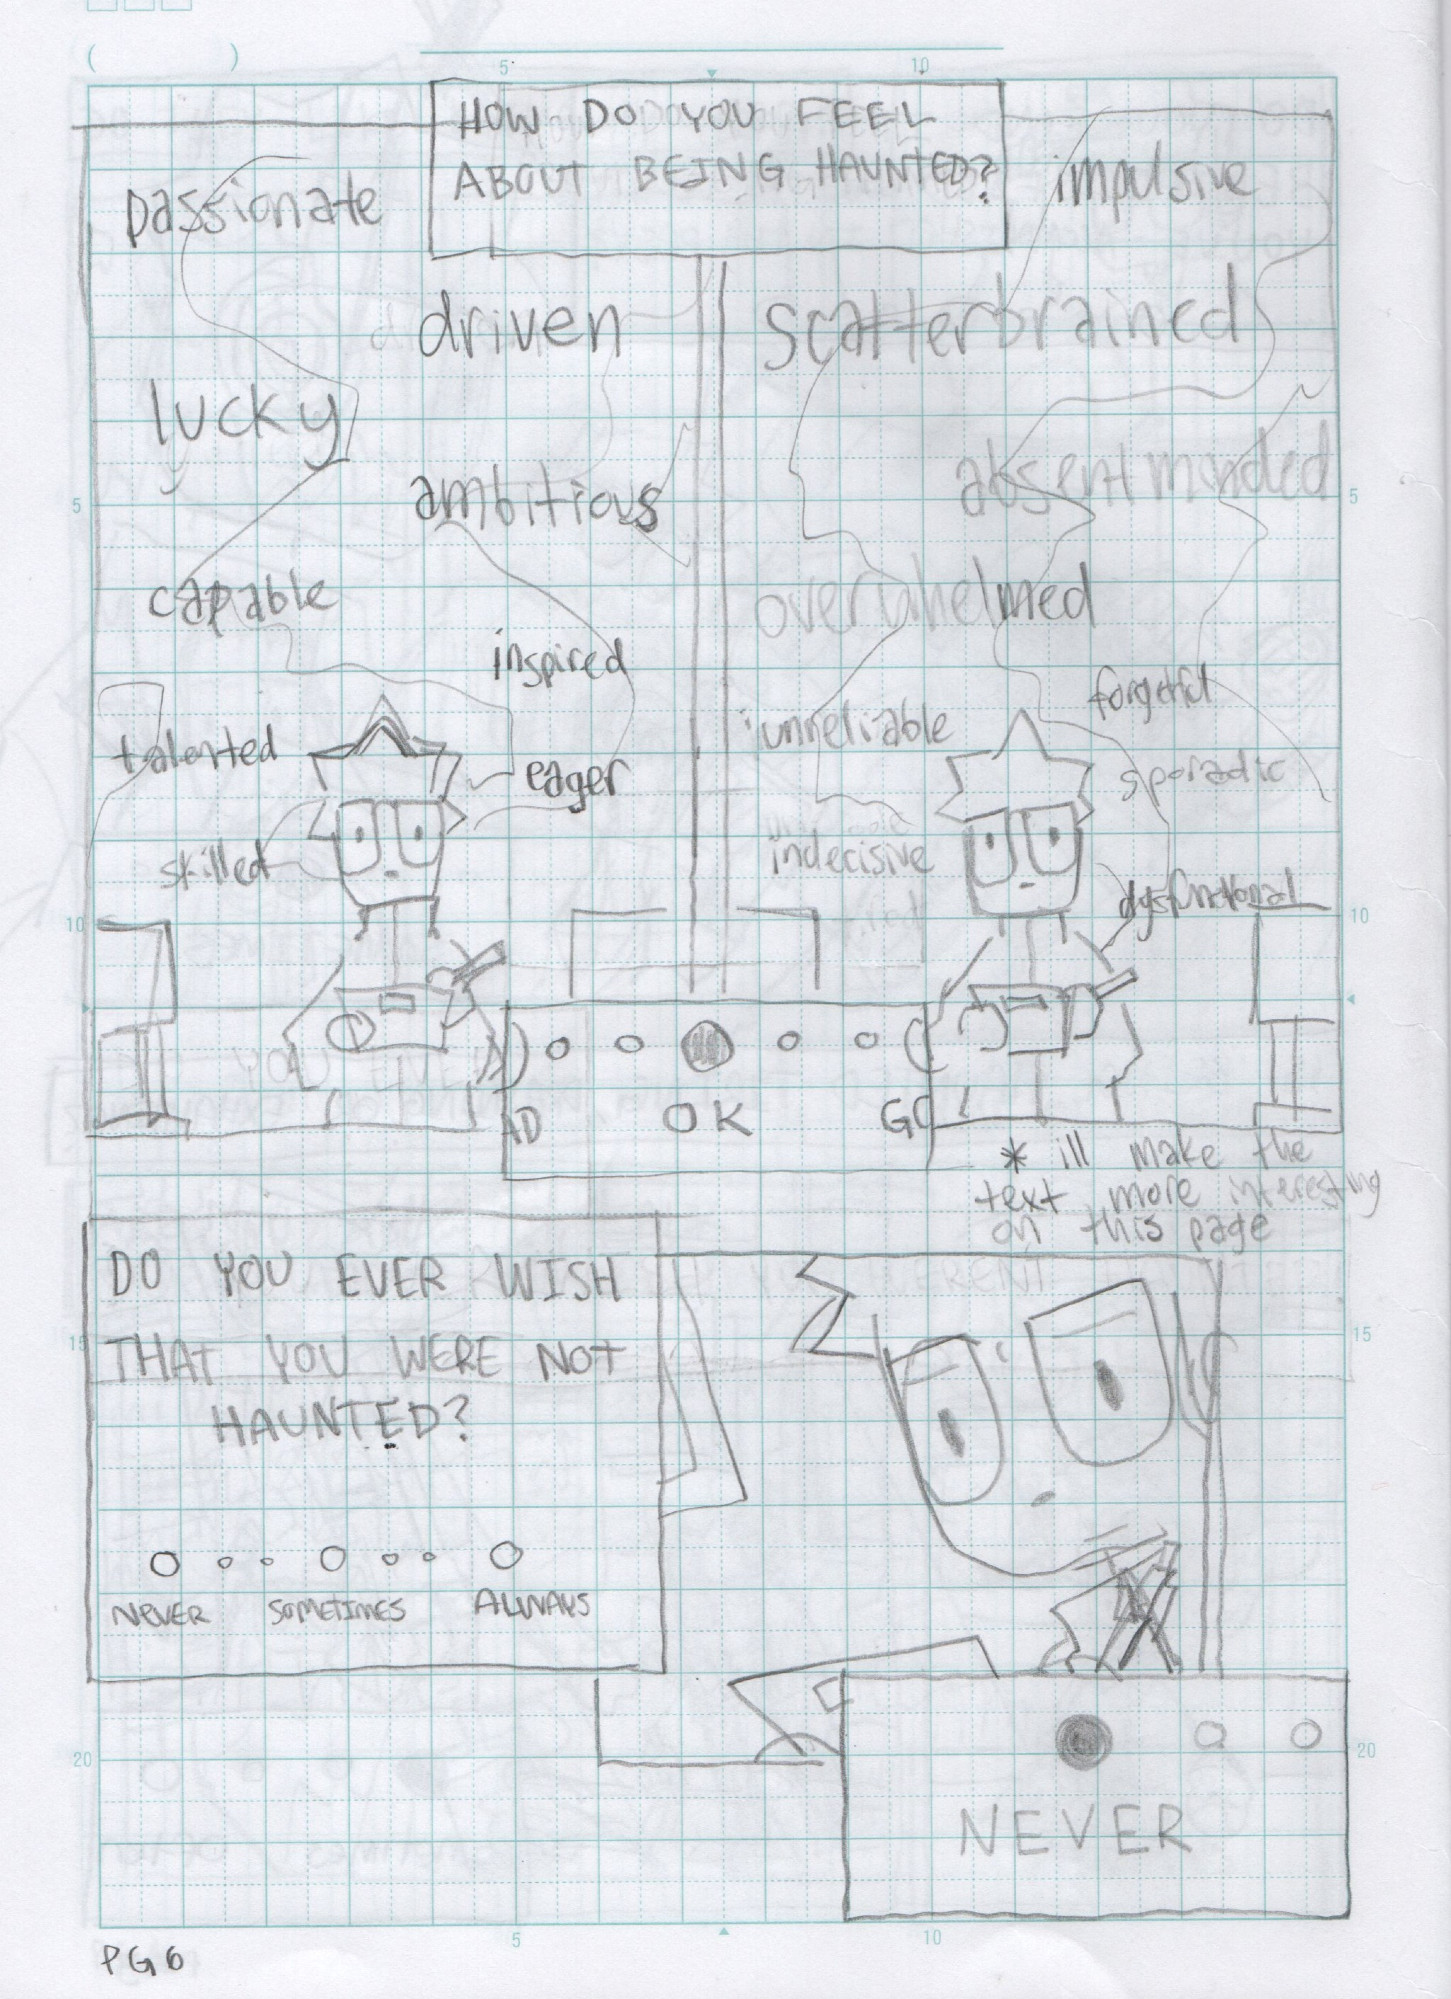 HOW DO YOU FEEL
ABOUT BEING HAUNTED?
passionate
driven
lucky
ambitious
capable
inspired
talented
eager
skilled
impulsive
scatterbrained
absent minded
overwhelmed
forgetful
unreliable
sporadic
indecisive
dysfunctional
tired
AD OK GO
* ill make the
text more interesting
on this page
DO YOU EVER WISH
THAT YOU WERE NOT
HAUNTED?
NEVER SOMETIMES ALWAYS
NEVER
PG6
5
10
5
5
10
10
15
15
20
20
5
10